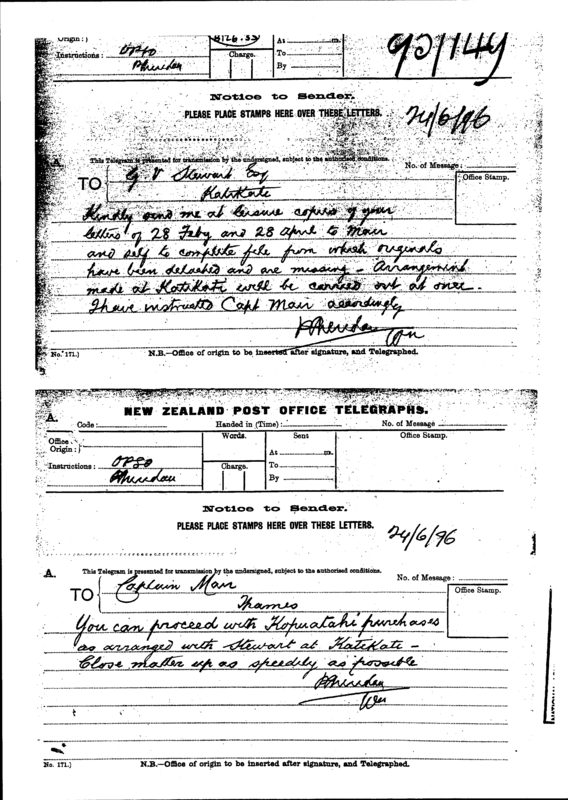 Origin:)
Instructions: OPSO
PSheridan
Charge.
At m.
To
By
92/1149
Notice to Sender.
PLEASE PLACE STAMPS HERE OVER THESE LETTERS.
24/6/96
A.
This Telegram is presented for transmission by the undersigned, subject to the authorised conditions.
No. of Message:
Office Stamp.
TO G V Stewart Esq
Katikati
Kindly send me at leisure copies of your
letters of 28 Feby and 28 april to Mair
and self to complete file from which originals
have been detached and are missing - Arrangement
made at Katikati will be carried out at once.
I have instructed Capt Mair accordingly
PSheridan
Wn
No. 171.)
N.B.—Office of origin to be inserted after signature, and Telegraphed.
NEW ZEALAND POST OFFICE TELEGRAPHS.
A.
Code:
Handed in (Time):
No. of Message
Office
Origin:)
Words.
Sent
Office Stamp.
At m.
Instructions: OPSO
PSheridan
Charge.
To
By
Notice to Sender.
PLEASE PLACE STAMPS HERE OVER THESE LETTERS.
24/6/96
A.
This Telegram is presented for transmission by the undersigned, subject to the authorised conditions.
No. of Message:
Office Stamp.
TO Captain Mair
Thames
You can proceed with Kopuatahi purchases
as arranged with Stewart at Katikati -
Close matter up as speedily as possible
PSheridan
Wn
No. 171.)
N.B.—Office of origin to be inserted after signature, and Telegraphed.